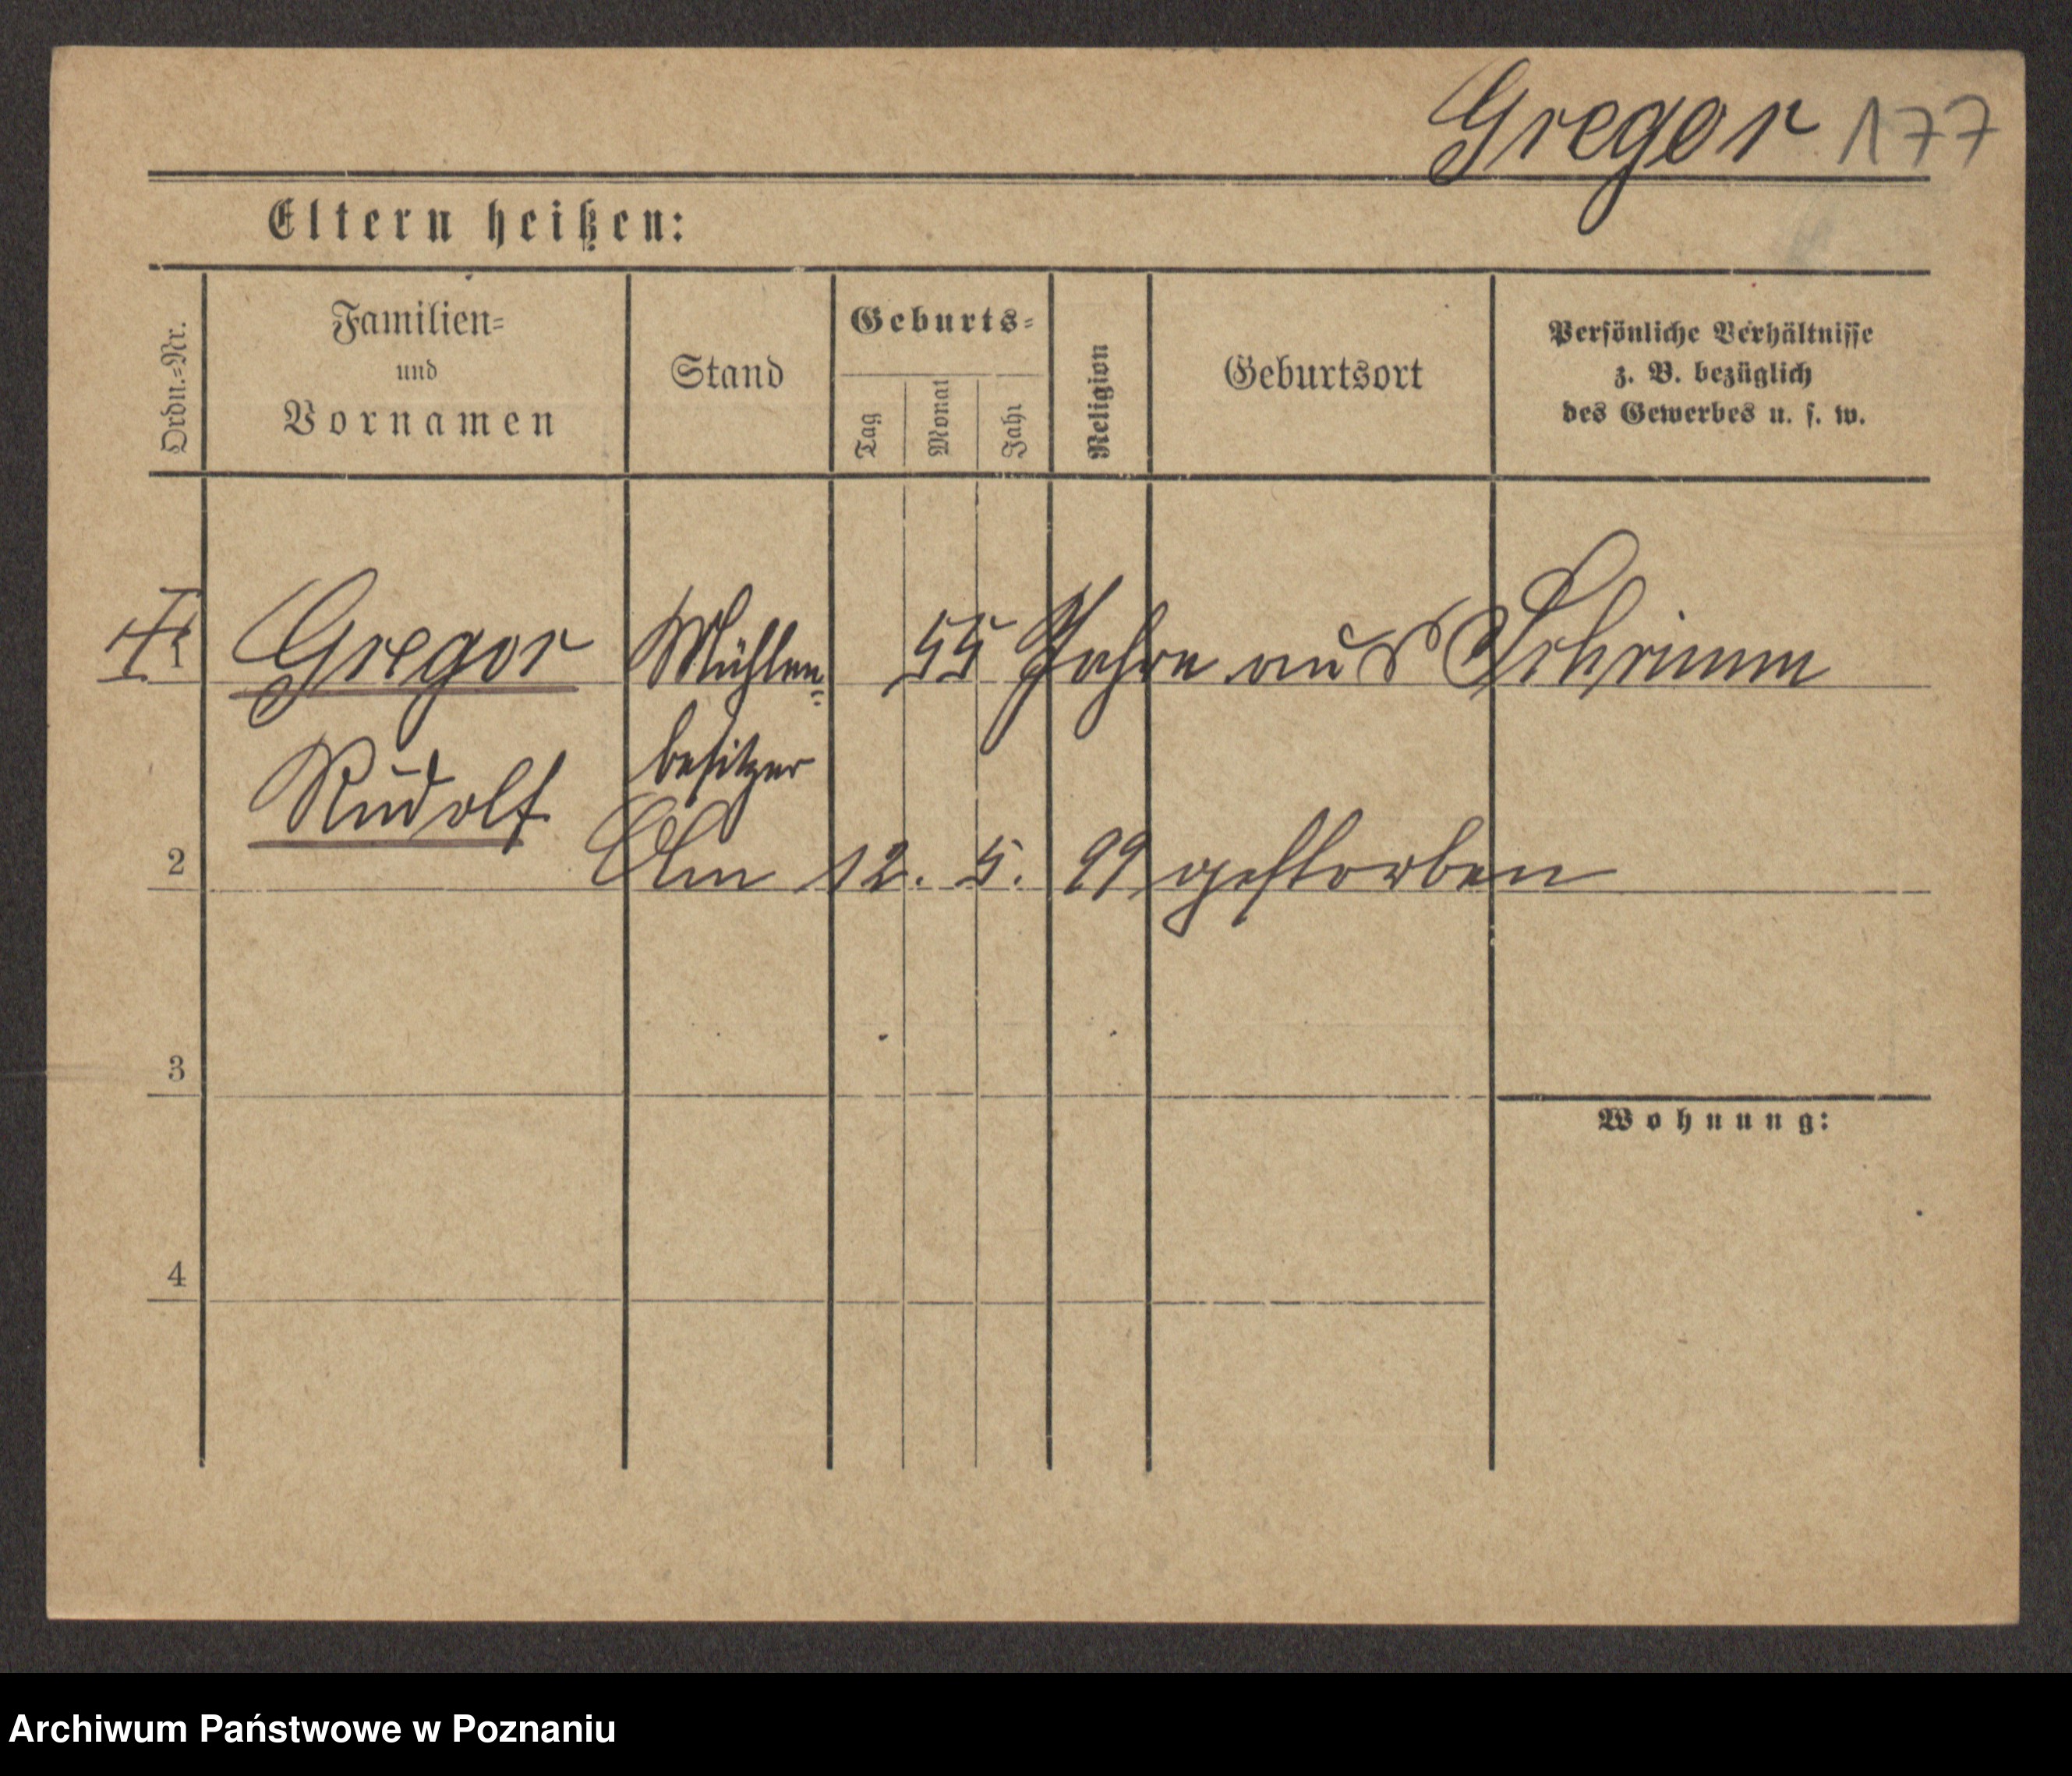 Gregor 177
Eltern heißen:
Ordn.-Nr.
Familien-
und
Vornamen
Stand
Geburts-
Tag
Monat
Jahr
Religion
Geburtsort
Persönliche Verhältnisse
z. B. bezüglich
des Gewerbes u. s. w.
1 Gregor Mühlen- 55 Jahre aus Schrimm
Rudolf besitzer
2 Am 12. 5. 99 gestorben
3
Wohnung:
4
Archiwum Państwowe w Poznaniu